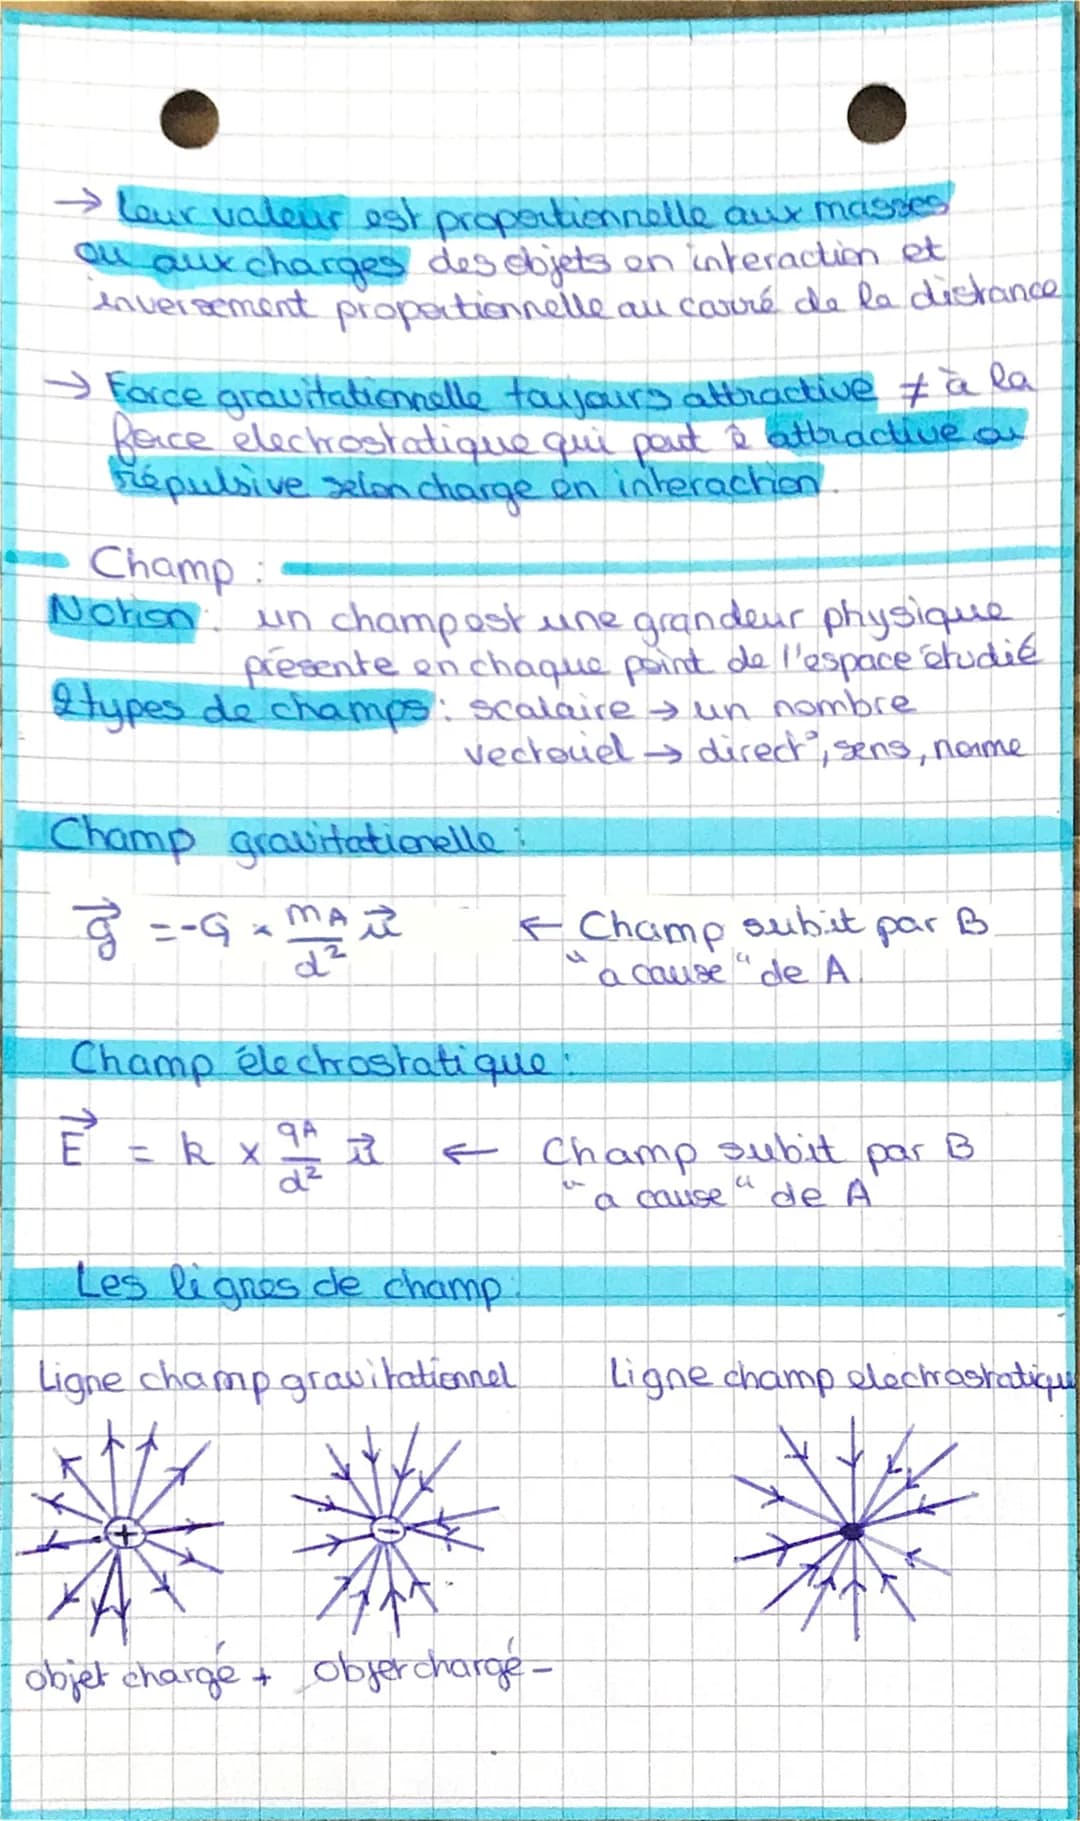 → Leur valeur est proportionnelle aux masses
ou aux charges des objets en interaction et
inversement proportionnelle au carré de la distance
→ Force gravitationnelle toujours attractive ≠ à la
force electrostatique qui peut ê attractive ou
Répulsive selon charge en interaction.
Champ :
Notion : un champ est une grandeur physique
présente en chaque point de l'espace étudié
2 types de champs : scalaire → un nombre
vectoriel → direct°, sens, norme
Champ gravitationelle :
g⃗ = -G × mA/d² u⃗ ← Champ subit par B
"a cause" de A.
Champ électrostatique :
E⃗ = k × qA/d² u⃗ ← Champ subit par B
"a cause" de A
Les lignes de champ :
Ligne champ gravitationnel Ligne champ electrostatique
+ −
objet chargé + objet chargé −